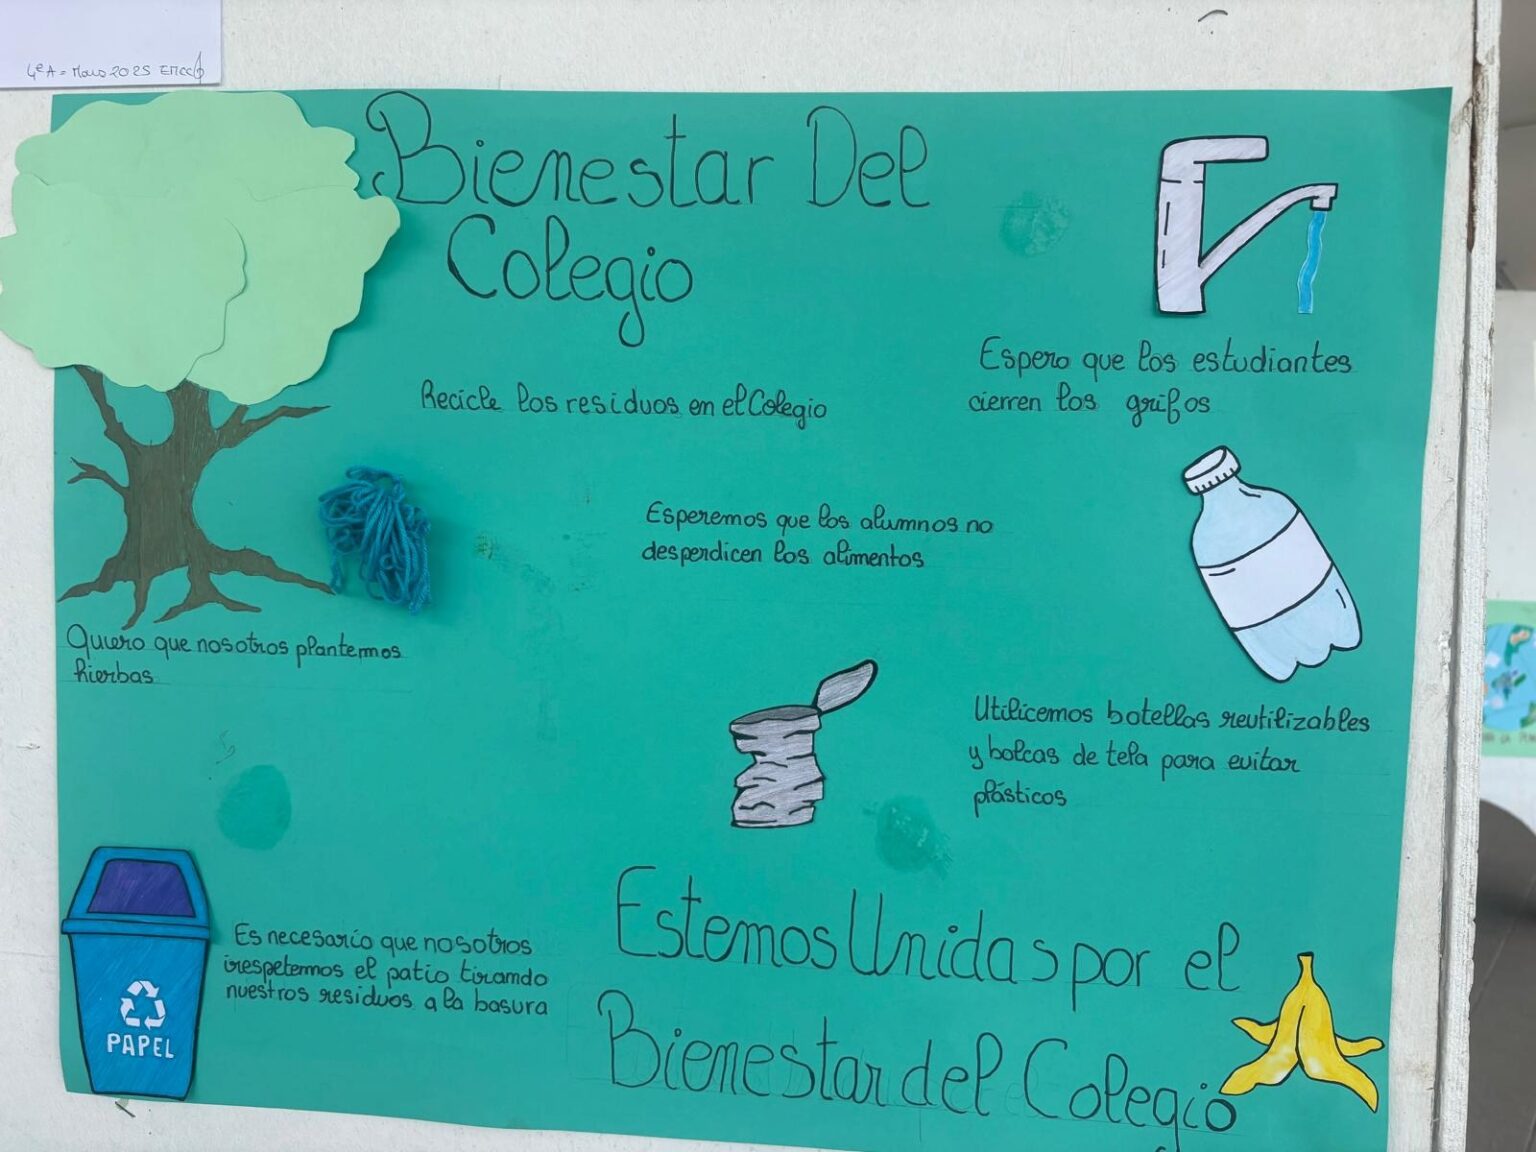 4ºA = Mars 2025
Bienestar Del
Colegio
Recicle los residuos en el Colegio
Espero que los estudiantes
cierren los grifos
Esperemos que los alumnos no
desperdicen los alimentos
Quiero que nosotros plantemos
hierbas
Utilicemos botellas reutilizables
y bolcas de tela para evitar
plásticos
Es necesario que nosotros
respetemos el patio tirando
nuestros residuos a la basura
PAPEL
Estemos Unidas por el
Bienestar del Colegio